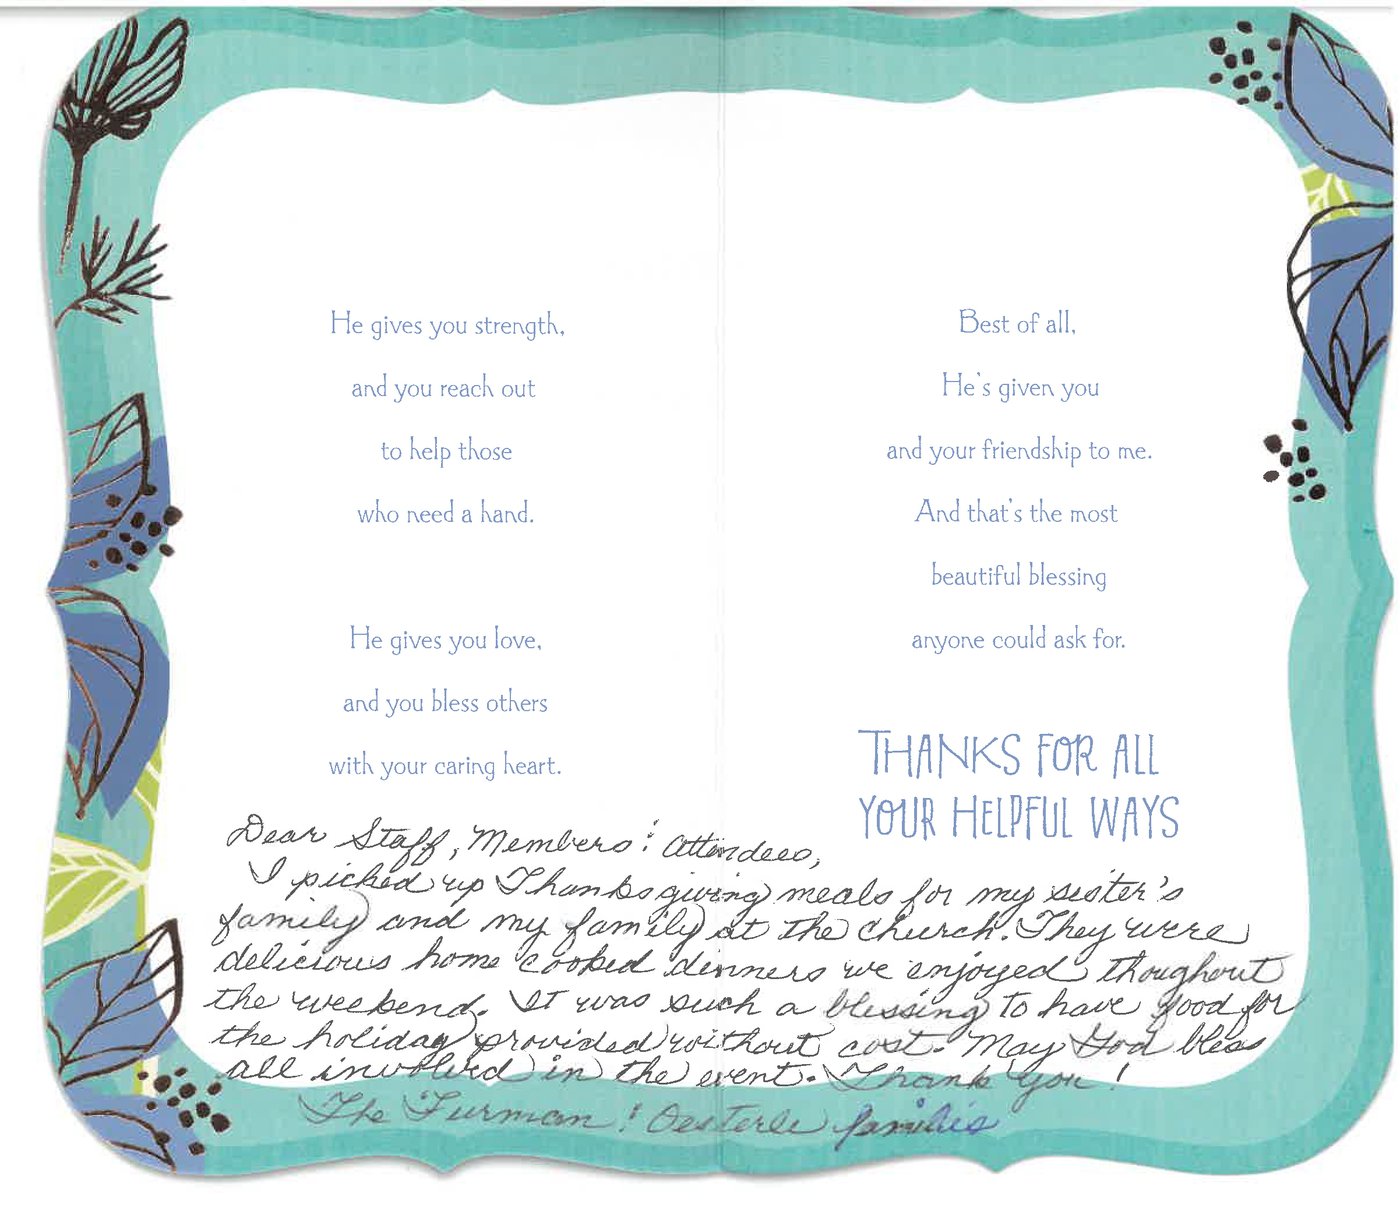 He gives you strength,
and you reach out
to help those
who need a hand.
He gives you love,
and you bless others
with your caring heart.
Best of all,
He's given you
and your friendship to me.
And that's the most
beautiful blessing
anyone could ask for.
THANKS FOR ALL
YOUR HELPFUL WAYS
Dear Staff, Members & Attendees,
I picked up Thanksgiving meals for my sister's
family and my family at the church. They were
delicious home cooked dinners we enjoyed thoughout
the weekend. It was such a blessing to have food for
the holiday provided without cost. May God bless
all involved in the event. Thank you!
The Furman & Oesterle families